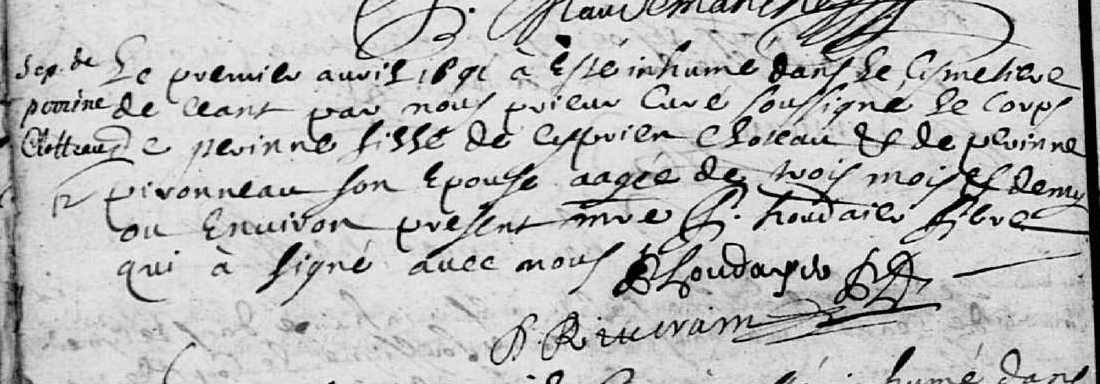 Sep. de
perrine
Le premier auril 1691 à Esté inhumé dans Le Cismetiere
de ceant par nous prieur Curé soussigné Le Corps
de perinne fille de Cyprien Choteau & de perinne
pironneau son Epouse aagée de trois mois & demy
ou Environ present mre P. houdaier pbre
qui à signé auec nous
P. Riuerain
inhumé dans